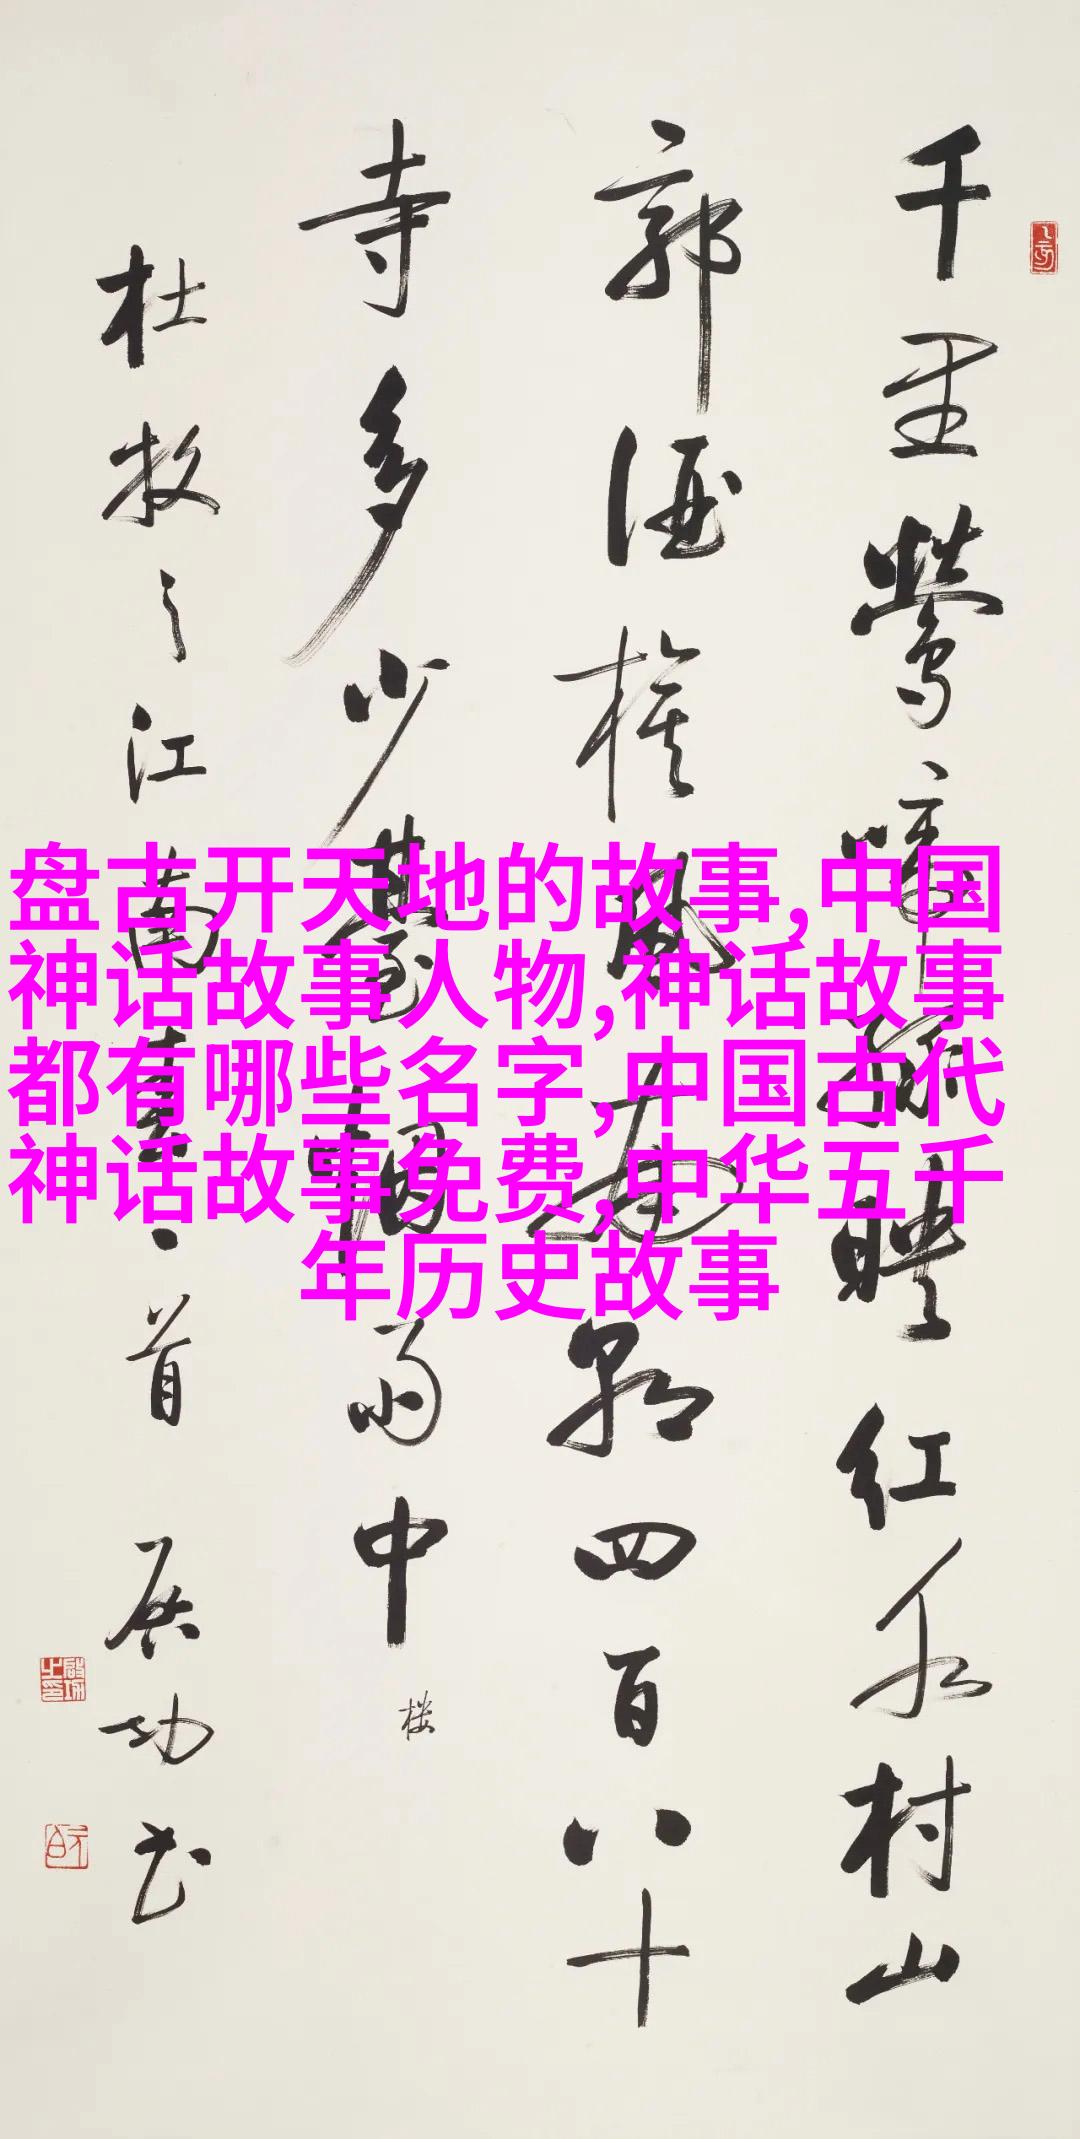 千里鶯啼緑映红水村山
郭酒旗風南朝四百八十
寺多少臺烟雨中
楼
杜牧之江南春一首 启功书
盘古开天地的故事,中国
神话故事人物,神话故事
都有哪些名字,中国古代
神话故事免费,中华五千
年历史故事